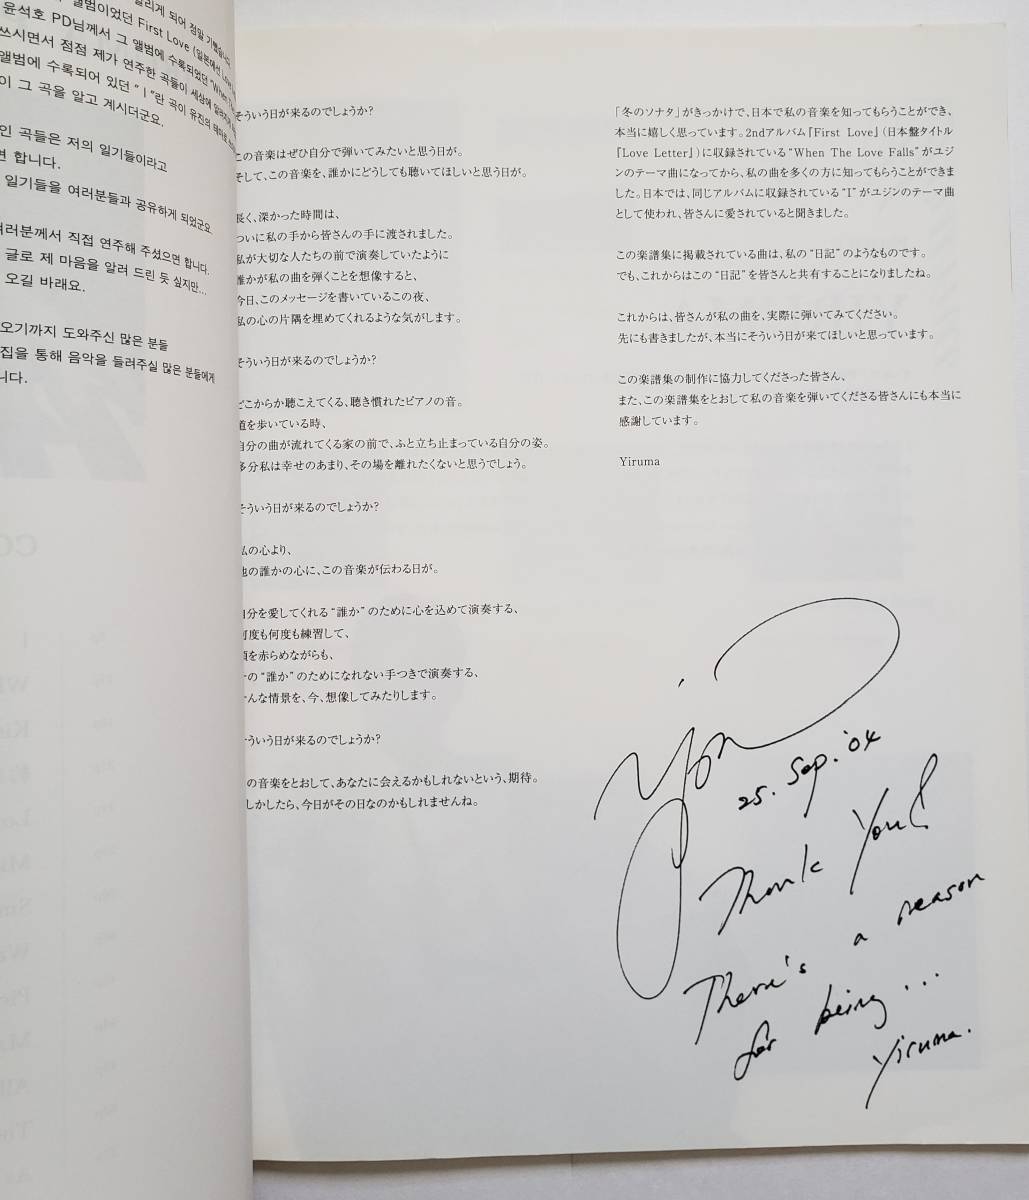 앨범이었던 First Love (일본에선 Love
윤석호 PD님께서 그 앨범에 수록되었던 "When The
쓰시면서 점점 제가 연주한 곡들이 세상에 알려지게
앨범에 수록되어 있던 " I "란 곡이 유진의 테마로
이 그 곡을 알고 계시더군요.
인 곡들은 저의 일기들이라고
면 합니다.
일기들을 여러분들과 공유하게 되었군요.
여러분께서 직접 연주해 주셨으면 합니다.
글로 제 마음을 알려 드린 듯 싶지만...
오길 바래요.
오기까지 도와주신 많은 분들
집을 통해 음악을 들려주실 많은 분들에게
니다.
そういう日が来るのでしょうか?
この音楽はぜひ自分で弾いてみたいと思う日が。
そして、この音楽を、誰かにどうしても聴いてほしいと思う日が。
長く、深かった時間は、
ついに私の手から皆さんの手に渡されました。
私が大切な人たちの前で演奏していたように
誰かが私の曲を弾くことを想像すると、
今日、このメッセージを書いているこの夜、
私の心の片隅を埋めてくれるような気がします。
そういう日が来るのでしょうか?
どこからか聴こえてくる、聴き慣れたピアノの音。
道を歩いている時、
自分の曲が流れてくる家の前で、ふと立ち止まっている自分の姿。
多分私は幸せのあまり、その場を離れたくないと思うでしょう。
そういう日が来るのでしょうか?
私の心より、
他の誰かの心に、この音楽が伝わる日が。
自分を愛してくれる"誰か"のために心を込めて演奏する、
何度も何度も練習して、
頬を赤らめながらも、
その"誰か"のためになれない手つきで演奏する、
そんな情景を、今、想像してみたりします。
そういう日が来るのでしょうか?
の音楽をとおして、あなたに会えるかもしれないという、期待。
しかしたら、今日がその日なのかもしれませんね。
「冬のソナタ」がきっかけで、日本で私の音楽を知ってもらうことができ、
本当に嬉しく思っています。2ndアルバム『First Love』(日本盤タイトル
『Love Letter』)に収録されている"When The Love Falls"がユジ
ンのテーマ曲になってから、私の曲を多くの方に知ってもらうことができま
した。日本では、同じアルバムに収録されている"I"がユジンのテーマ曲
として使われ、皆さんに愛されていると聞きました。
この楽譜集に掲載されている曲は、私の"日記"のようなものです。
でも、これからはこの"日記"を皆さんと共有することになりましたね。
これからは、皆さんが私の曲を、実際に弾いてみてください。
先にも書きましたが、本当にそういう日が来てほしいと思っています。
この楽譜集の制作に協力してくださった皆さん、
また、この楽譜集をとおして私の音楽を弾いてくださる皆さんにも本当に
感謝しています。
Yiruma
25. Sep. '04
Thank You!
There's a reason
for being...
Yiruma.